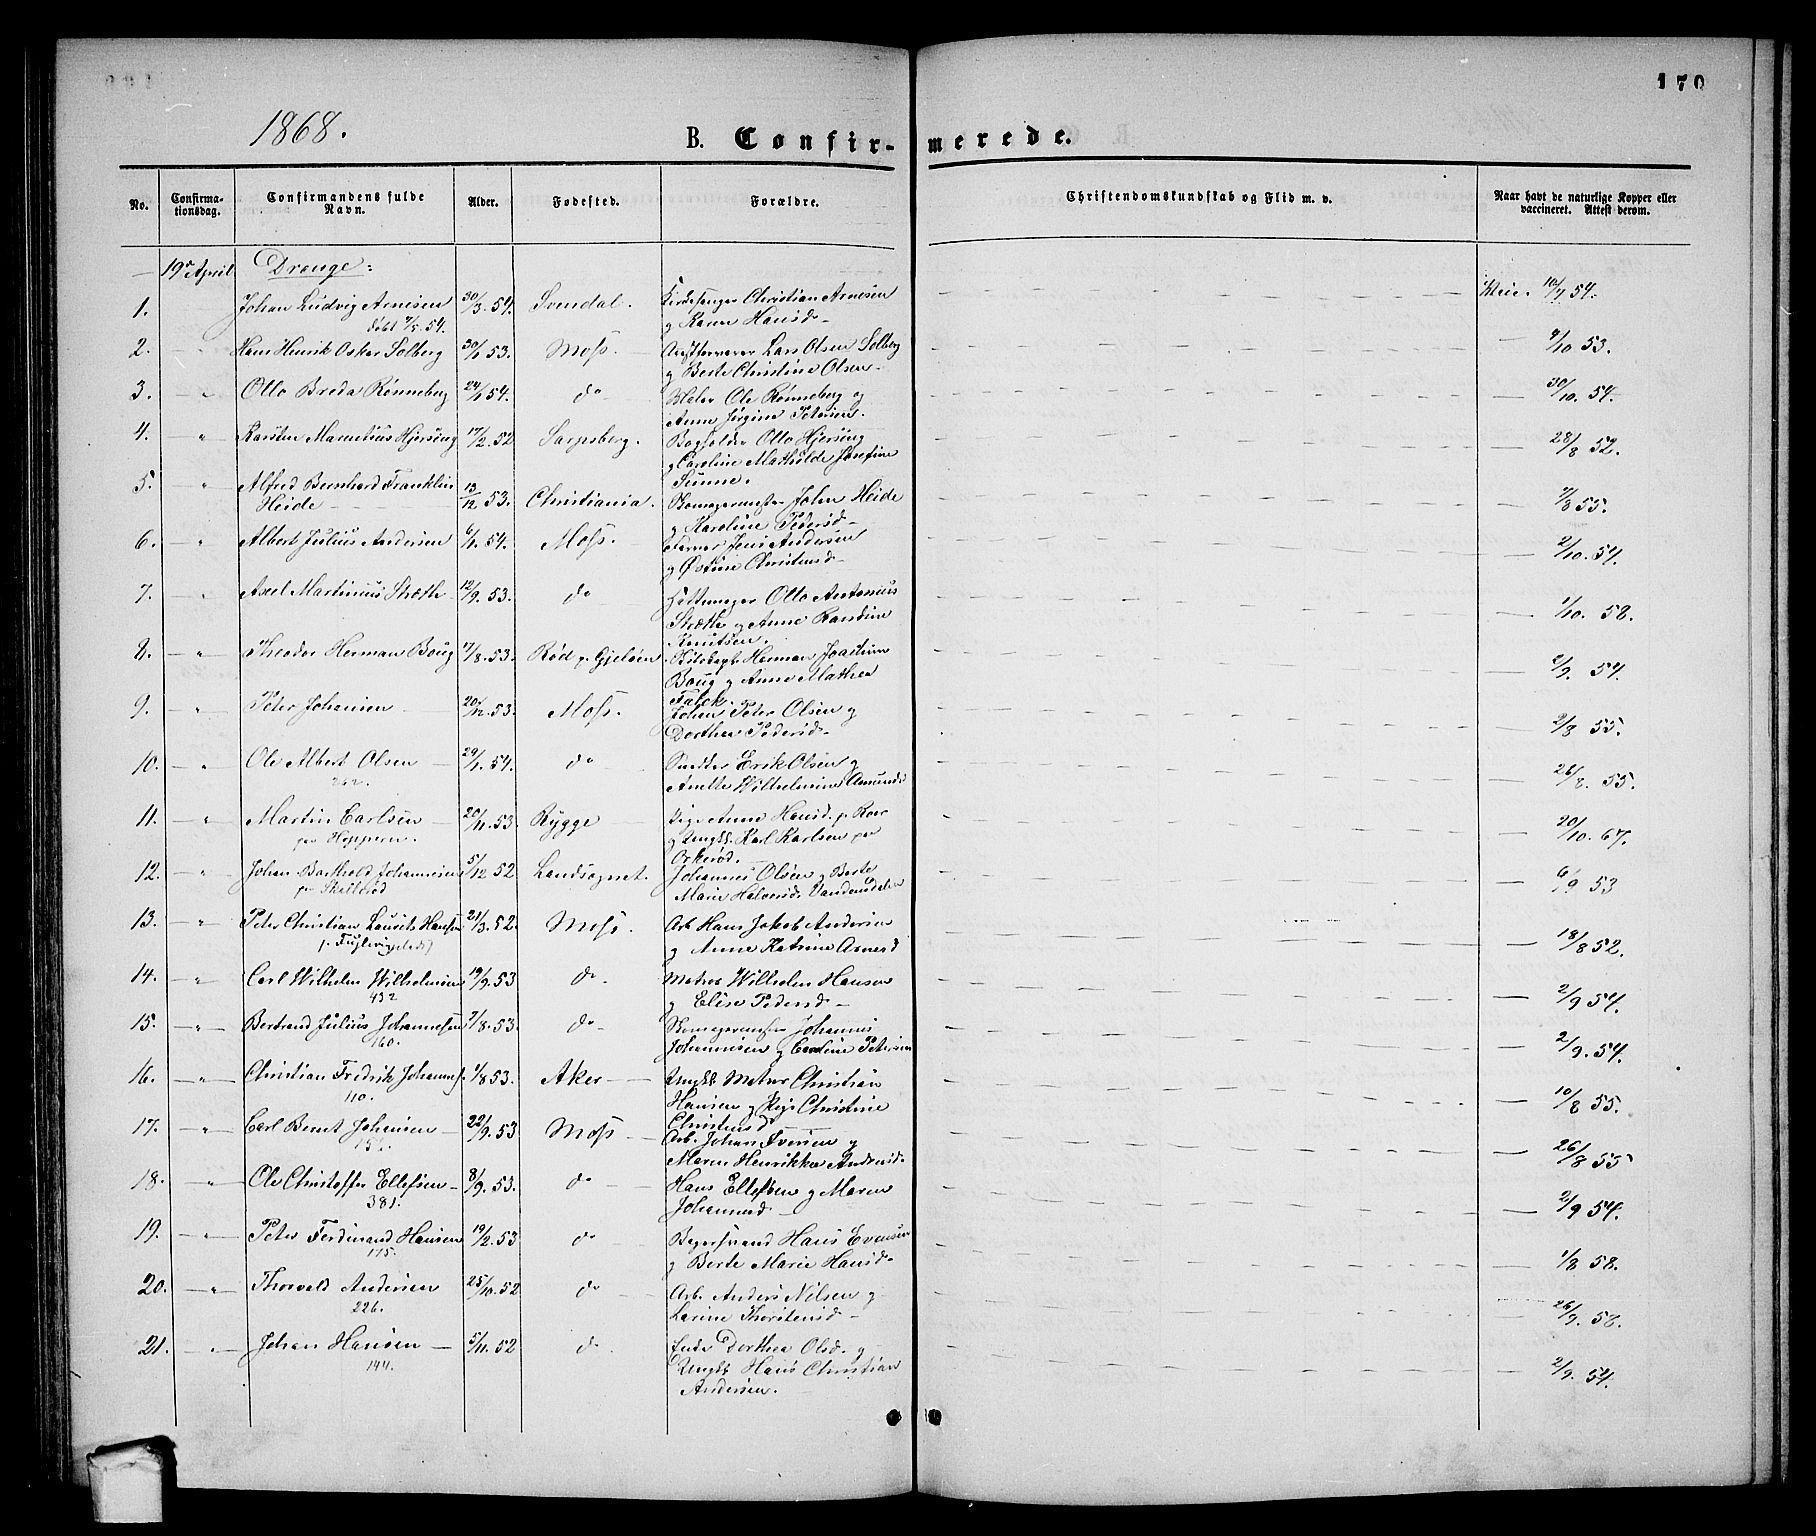 170
1868.
B. Confir-merede.
No.
Confirma-
tionsdag.
Confirmandens fulde
Navn.
Alder.
Fødested.
Forældre.
Christendomskundskab og Flid m. v.
Naar havt de naturlige Kopper eller
vaccineret. Attest derom.
19de April Drenge:
1. Johan Ludvig Arnesen 30/3. 54. Svendal. Kirkesanger Christian Arnesen Vacc. 10/7 54.
døbt 7/5. 54. og Karen Hansd.
2. " Hans Henrik Oskar Solberg 30/1 53. Moss. Arrestforvarer Lars Olsen Solberg 4/10 53.
og Berte Christine Olsen
3. " Otto Breda Rønneberg 24/1 54. do Maler Ole Rønneberg og 30/10. 54.
Anne Jørgine Petersen.
4. " Karsten Mauritius Hjersing 17/2. 52 Sarpsberg. Bogholder Otto Hjersing 28/8 52.
og Caroline Mathilde Josefine
5. " Alfred Bernhard Franklin Sunne.
Heide 13/12 53. Christiania. Skomagermester John Heide 7/8 55.
og Karoline Pedersd.
6. " Albert Julius Andersen 6/1. 54. Moss. Farver Jens Andersen 2/10. 54.
og Østine Christensd.
7. " Axel Martinius Stræthe 12/9. 53. do Hattemager Otto Antonius 1/10. 58.
Stræthe og Anne Randine
Knutsen.
8. " Theodor Herman Boug 17/8. 53. Rød p. Gjeløen Herman Joachim 2/9. 54.
Boug og Anne Mathea
Falck.
9. " Peter Johansen 20/12. 53. Moss. Johan Peter Olsen og 2/8 55.
Dorthea Pedersd.
10. " Ole Albert Olsen 29/1. 54. do Snedker Erik Olsen og 26/8. 55.
262. Anette Wilhelmine Amundsd
11. " Martin Carlsen 20/11. 53. Rygge Pige Anne Hansd. p. Roer 20/10. 67.
paa Hoppern. og Ungk. Karl Karlsen paa
Orkerød.
12. " Johan Barthold Johannesen 5/12 52 Landsognet. Johannes Olsen og Berte 6/9 53
p. Skallerød Marie Halvorsd. Vandendalen
13. " Peter Christian Laurits Hansen 21/3. 52. Moss. Arb. Hans Jakob Andersen 18/8 52.
og Anne Katrine Arnesd
14. " Carl Wilhelm Wilhelmsen 19/9. 53 do Matros Wilhelm Hansen 2/9 54.
432 og Elise Pedersd.
15. " Bertrand Julius Johannesen 7/8. 53. do Skomagermester Johannes 2/9. 54.
160. Johannesen og Caroline Petersen
16. " Christian Fredrik Johannes. 1/8 53. Aker Ungk. Matros Christian 10/8 55.
110. Hansen og Pige Christine
Christensd
17. " Carl Bernt Johansen 22/9. 53 Moss Arb. Johan Iversen og 26/8 55
Maren Henrikke Andersd.
18. " Ole Christoffer Ellefsen 8/9. 53. do Hans Ellefsen og Maren 2/9 54.
381. Johannesd.
19. " Peter Ferdinand Hansen 19/2. 53 do Hans Evensen 1/8 58.
175. og Berte Marie Hansd.
20. " Thorvald Andersen 25/10. 52 do Arb. Anders Nilsen og 26/9. 58.
226. Larine Thorstensd.
21. " Johan Hansen 5/11. 52 do Enke Dorthea Olsd. og 2/9. 54.
144. Ungk. Hans Christian
Andersen.